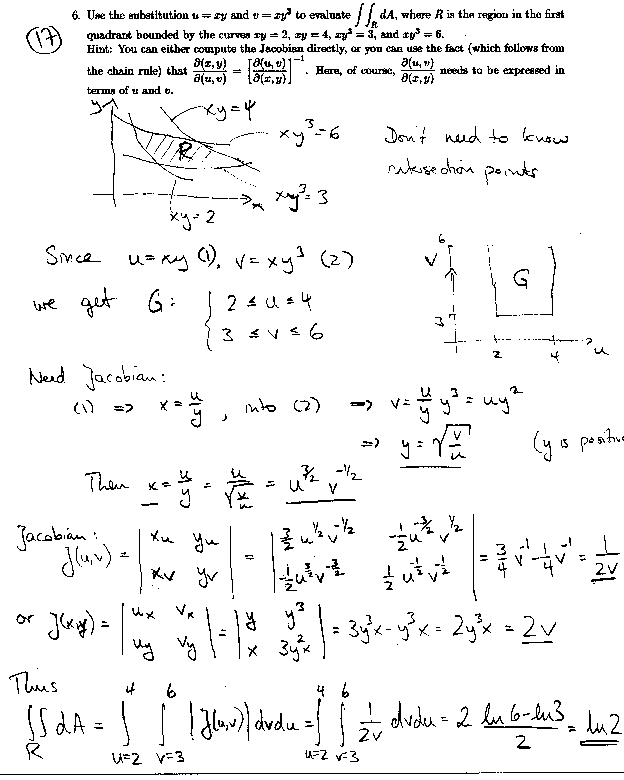 6. Use the substitution u = xy and v = xy³ to evaluate ∬_R dA, where R is the region in the first
(17) quadrant bounded by the curves xy = 2, xy = 4, xy³ = 3, and xy³ = 6.
Hint: You can either compute the Jacobian directly, or you can use the fact (which follows from
the chain rule) that ∂(x,y)/∂(u,v) = [∂(u,v)/∂(x,y)]⁻¹. Here, of course, ∂(u,v)/∂(x,y) needs to be expressed in
terms of u and v.
y
xy=4
xy³=6
R
Don't need to know
intersection points
x
xy³=3
xy=2
Since u=xy (1), v=xy³ (2)
we get G: { 2 ≤ u ≤ 4
3 ≤ v ≤ 6
6
v
G
3
2 4 u
Need Jacobian:
(1) => x = u/y, into (2) => v = u/y y³ = uy²
=> y = √(v/u) (y is positive
Then x = u/y = u/√(v/u) = u^(3/2) v^(-1/2)
Jacobian: J(u,v) = | x_u y_u ; x_v y_v | = | 3/2 u^(1/2) v^(-1/2) -1/2 u^(-3/2) v^(1/2) ; -1/2 u^(3/2) v^(-3/2) 1/2 u^(-1/2) v^(-1/2) | = 3/4 v⁻¹ - 1/4 v⁻¹ = 1/2v
or J(x,y) = | u_x v_x ; u_y v_y | = | y y³ ; x 3y²x | = 3y³x - y³x = 2y³x = 2v
Thus
∬_R dA = ∫_{u=2}^{4} ∫_{v=3}^{6} |J(u,v)| dvdu = ∫_{u=2}^{4} ∫_{v=3}^{6} 1/2v dvdu = 2 (ln6-ln3)/2 = ln2